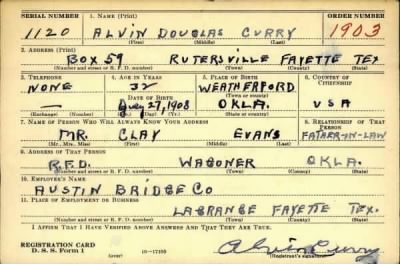 SERIAL NUMBER 1. NAME (Print) ORDER NUMBER
1120 ALVIN DOUGLAS CURRY 1903
(First) (Middle) (Last)
2. ADDRESS (Print)
BOX 59 RUTERSVILLE FAYETTE TEX
(Number and street or R. F. D. number) (Town) (County) (State)
3. TELEPHONE 4. AGE IN YEARS 5. PLACE OF BIRTH 6. COUNTRY OF CITIZENSHIP
NONE 32 WEATHERFORD
DATE OF BIRTH (Town or county)
— 27, 1908 OKLA. USA
(Exchange) (Number) (Mo.) (Day) (Yr.) (State or country)
7. NAME OF PERSON WHO WILL ALWAYS KNOW YOUR ADDRESS 8. RELATIONSHIP OF THAT PERSON
MR. CLAY EVANS FATHER-IN-LAW
(Mr., Mrs., Miss) (First) (Middle) (Last)
9. ADDRESS OF THAT PERSON
R.F.D. WAGONER OKLA.
(Number and street or R. F. D. number) (Town) (County) (State)
10. EMPLOYER'S NAME
AUSTIN BRIDGE CO
11. PLACE OF EMPLOYMENT OR BUSINESS
LAGRANGE FAYETTE TEX.
(Number and street or R. F. D. number) (Town) (County) (State)
I AFFIRM THAT I HAVE VERIFIED ABOVE ANSWERS AND THAT THEY ARE TRUE.
REGISTRATION CARD
D. S. S. Form 1 (over) Alvin Curry
(Registrant's signature)